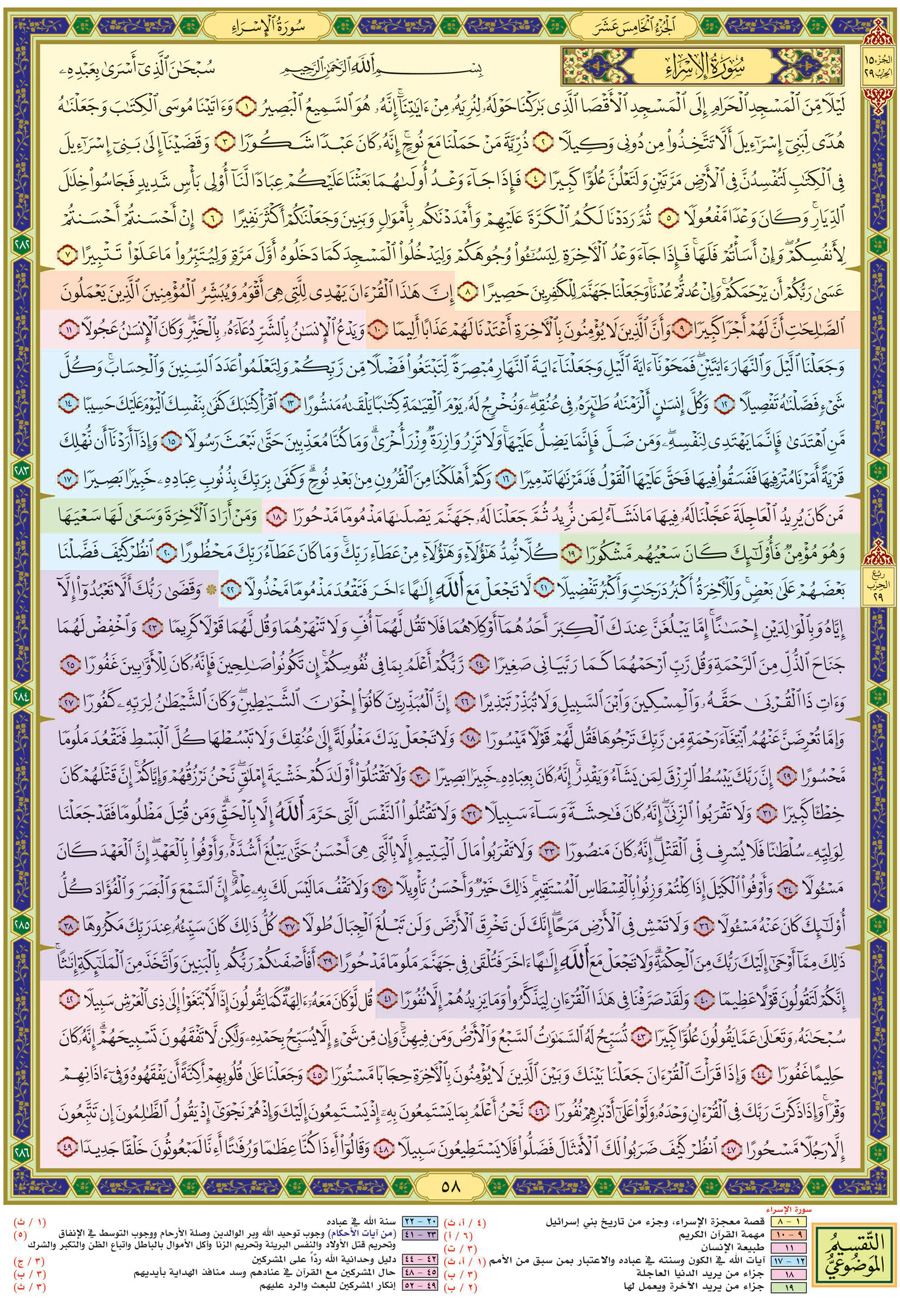 الجزء الخامس عشر
سورة الإسراء
الجزء ١٥
الحزب ٢٩
سُورَةُ الإِسْرَاءِ بِسْمِ اللَّهِ الرَّحْمَٰنِ الرَّحِيمِ سُبْحَانَ الَّذِي أَسْرَىٰ بِعَبْدِهِ
لَيْلًا مِّنَ الْمَسْجِدِ الْحَرَامِ إِلَى الْمَسْجِدِ الْأَقْصَا الَّذِي بَارَكْنَا حَوْلَهُ لِنُرِيَهُ مِنْ ءَايَاتِنَا إِنَّهُ هُوَ السَّمِيعُ الْبَصِيرُ ١ وَءَاتَيْنَا مُوسَى الْكِتَابَ وَجَعَلْنَاهُ
هُدًى لِّبَنِي إِسْرَاءِيلَ أَلَّا تَتَّخِذُوا مِن دُونِي وَكِيلًا ٢ ذُرِّيَّةَ مَنْ حَمَلْنَا مَعَ نُوحٍ إِنَّهُ كَانَ عَبْدًا شَكُورًا ٣ وَقَضَيْنَا إِلَىٰ بَنِي إِسْرَاءِيلَ
فِي الْكِتَابِ لَتُفْسِدُنَّ فِي الْأَرْضِ مَرَّتَيْنِ وَلَتَعْلُنَّ عُلُوًّا كَبِيرًا ٤ فَإِذَا جَاءَ وَعْدُ أُولَاهُمَا بَعَثْنَا عَلَيْكُمْ عِبَادًا لَّنَا أُولِي بَأْسٍ شَدِيدٍ فَجَاسُوا خِلَالَ
الدِّيَارِ وَكَانَ وَعْدًا مَّفْعُولًا ٥ ثُمَّ رَدَدْنَا لَكُمُ الْكَرَّةَ عَلَيْهِمْ وَأَمْدَدْنَاكُم بِأَمْوَالٍ وَبَنِينَ وَجَعَلْنَاكُمْ أَكْثَرَ نَفِيرًا ٦ إِنْ أَحْسَنتُمْ أَحْسَنتُمْ
لِأَنفُسِكُمْ وَإِنْ أَسَأْتُمْ فَلَهَا فَإِذَا جَاءَ وَعْدُ الْآخِرَةِ لِيَسُءُوا وُجُوهَكُمْ وَلِيَدْخُلُوا الْمَسْجِدَ كَمَا دَخَلُوهُ أَوَّلَ مَرَّةٍ وَلِيُتَبِّرُوا مَا عَلَوْا تَتْبِيرًا ٧
عَسَىٰ رَبُّكُمْ أَن يَرْحَمَكُمْ وَإِنْ عُدتُّمْ عُدْنَا وَجَعَلْنَا جَهَنَّمَ لِلْكَافِرِينَ حَصِيرًا ٨ إِنَّ هَٰذَا الْقُرْءَانَ يَهْدِي لِلَّتِي هِيَ أَقْوَمُ وَيُبَشِّرُ الْمُؤْمِنِينَ الَّذِينَ يَعْمَلُونَ
الصَّالِحَاتِ أَنَّ لَهُمْ أَجْرًا كَبِيرًا ٩ وَأَنَّ الَّذِينَ لَا يُؤْمِنُونَ بِالْآخِرَةِ أَعْتَدْنَا لَهُمْ عَذَابًا أَلِيمًا ١٠ وَيَدْعُ الْإِنسَانُ بِالشَّرِّ دُعَاءَهُ بِالْخَيْرِ وَكَانَ الْإِنسَانُ عَجُولًا ١١
وَجَعَلْنَا اللَّيْلَ وَالنَّهَارَ ءَايَتَيْنِ فَمَحَوْنَا ءَايَةَ اللَّيْلِ وَجَعَلْنَا ءَايَةَ النَّهَارِ مُبْصِرَةً لِّتَبْتَغُوا فَضْلًا مِّن رَّبِّكُمْ وَلِتَعْلَمُوا عَدَدَ السِّنِينَ وَالْحِسَابَ وَكُلَّ
شَيْءٍ فَصَّلْنَاهُ تَفْصِيلًا ١٢ وَكُلَّ إِنسَانٍ أَلْزَمْنَاهُ طَائِرَهُ فِي عُنُقِهِ وَنُخْرِجُ لَهُ يَوْمَ الْقِيَامَةِ كِتَابًا يَلْقَاهُ مَنشُورًا ١٣ اقْرَأْ كِتَابَكَ كَفَىٰ بِنَفْسِكَ الْيَوْمَ عَلَيْكَ حَسِيبًا ١٤
مَّنِ اهْتَدَىٰ فَإِنَّمَا يَهْتَدِي لِنَفْسِهِ وَمَن ضَلَّ فَإِنَّمَا يَضِلُّ عَلَيْهَا وَلَا تَزِرُ وَازِرَةٌ وِزْرَ أُخْرَىٰ وَمَا كُنَّا مُعَذِّبِينَ حَتَّىٰ نَبْعَثَ رَسُولًا ١٥ وَإِذَا أَرَدْنَا أَن نُّهْلِكَ
قَرْيَةً أَمَرْنَا مُتْرَفِيهَا فَفَسَقُوا فِيهَا فَحَقَّ عَلَيْهَا الْقَوْلُ فَدَمَّرْنَاهَا تَدْمِيرًا ١٦ وَكَمْ أَهْلَكْنَا مِنَ الْقُرُونِ مِن بَعْدِ نُوحٍ وَكَفَىٰ بِرَبِّكَ بِذُنُوبِ عِبَادِهِ خَبِيرًا بَصِيرًا ١٧
مَّن كَانَ يُرِيدُ الْعَاجِلَةَ عَجَّلْنَا لَهُ فِيهَا مَا نَشَاءُ لِمَن نُّرِيدُ ثُمَّ جَعَلْنَا لَهُ جَهَنَّمَ يَصْلَاهَا مَذْمُومًا مَّدْحُورًا ١٨ وَمَنْ أَرَادَ الْآخِرَةَ وَسَعَىٰ لَهَا سَعْيَهَا
وَهُوَ مُؤْمِنٌ فَأُولَٰئِكَ كَانَ سَعْيُهُم مَّشْكُورًا ١٩ كُلًّا نُّمِدُّ هَٰؤُلَاءِ وَهَٰؤُلَاءِ مِنْ عَطَاءِ رَبِّكَ وَمَا كَانَ عَطَاءُ رَبِّكَ مَحْظُورًا ٢٠ انظُرْ كَيْفَ فَضَّلْنَا
بَعْضَهُمْ عَلَىٰ بَعْضٍ وَلَلْآخِرَةُ أَكْبَرُ دَرَجَاتٍ وَأَكْبَرُ تَفْضِيلًا ٢١ لَّا تَجْعَلْ مَعَ اللَّهِ إِلَٰهًا ءَاخَرَ فَتَقْعُدَ مَذْمُومًا مَّخْذُولًا ٢٢ ۞ وَقَضَىٰ رَبُّكَ أَلَّا تَعْبُدُوا إِلَّا
إِيَّاهُ وَبِالْوَالِدَيْنِ إِحْسَانًا إِمَّا يَبْلُغَنَّ عِندَكَ الْكِبَرَ أَحَدُهُمَا أَوْ كِلَاهُمَا فَلَا تَقُل لَّهُمَا أُفٍّ وَلَا تَنْهَرْهُمَا وَقُل لَّهُمَا قَوْلًا كَرِيمًا ٢٣ وَاخْفِضْ لَهُمَا
جَنَاحَ الذُّلِّ مِنَ الرَّحْمَةِ وَقُل رَّبِّ ارْحَمْهُمَا كَمَا رَبَّيَانِي صَغِيرًا ٢٤ رَّبُّكُمْ أَعْلَمُ بِمَا فِي نُفُوسِكُمْ إِن تَكُونُوا صَالِحِينَ فَإِنَّهُ كَانَ لِلْأَوَّابِينَ غَفُورًا ٢٥
وَءَاتِ ذَا الْقُرْبَىٰ حَقَّهُ وَالْمِسْكِينَ وَابْنَ السَّبِيلِ وَلَا تُبَذِّرْ تَبْذِيرًا ٢٦ إِنَّ الْمُبَذِّرِينَ كَانُوا إِخْوَانَ الشَّيَاطِينِ وَكَانَ الشَّيْطَانُ لِرَبِّهِ كَفُورًا ٢٧
وَإِمَّا تُعْرِضَنَّ عَنْهُمُ ابْتِغَاءَ رَحْمَةٍ مِّن رَّبِّكَ تَرْجُوهَا فَقُل لَّهُمْ قَوْلًا مَّيْسُورًا ٢٨ وَلَا تَجْعَلْ يَدَكَ مَغْلُولَةً إِلَىٰ عُنُقِكَ وَلَا تَبْسُطْهَا كُلَّ الْبَسْطِ فَتَقْعُدَ مَلُومًا
مَّحْسُورًا ٢٩ إِنَّ رَبَّكَ يَبْسُطُ الرِّزْقَ لِمَن يَشَاءُ وَيَقْدِرُ إِنَّهُ كَانَ بِعِبَادِهِ خَبِيرًا بَصِيرًا ٣٠ وَلَا تَقْتُلُوا أَوْلَادَكُمْ خَشْيَةَ إِمْلَاقٍ نَّحْنُ نَرْزُقُهُمْ وَإِيَّاكُمْ إِنَّ قَتْلَهُمْ كَانَ
خِطْئًا كَبِيرًا ٣١ وَلَا تَقْرَبُوا الزِّنَىٰ إِنَّهُ كَانَ فَاحِشَةً وَسَاءَ سَبِيلًا ٣٢ وَلَا تَقْتُلُوا النَّفْسَ الَّتِي حَرَّمَ اللَّهُ إِلَّا بِالْحَقِّ وَمَن قُتِلَ مَظْلُومًا فَقَدْ جَعَلْنَا
لِوَلِيِّهِ سُلْطَانًا فَلَا يُسْرِف فِّي الْقَتْلِ إِنَّهُ كَانَ مَنصُورًا ٣٣ وَلَا تَقْرَبُوا مَالَ الْيَتِيمِ إِلَّا بِالَّتِي هِيَ أَحْسَنُ حَتَّىٰ يَبْلُغَ أَشُدَّهُ وَأَوْفُوا بِالْعَهْدِ إِنَّ الْعَهْدَ كَانَ
مَسْئُولًا ٣٤ وَأَوْفُوا الْكَيْلَ إِذَا كِلْتُمْ وَزِنُوا بِالْقِسْطَاسِ الْمُسْتَقِيمِ ذَٰلِكَ خَيْرٌ وَأَحْسَنُ تَأْوِيلًا ٣٥ وَلَا تَقْفُ مَا لَيْسَ لَكَ بِهِ عِلْمٌ إِنَّ السَّمْعَ وَالْبَصَرَ وَالْفُؤَادَ كُلُّ
أُولَٰئِكَ كَانَ عَنْهُ مَسْئُولًا ٣٦ وَلَا تَمْشِ فِي الْأَرْضِ مَرَحًا إِنَّكَ لَن تَخْرِقَ الْأَرْضَ وَلَن تَبْلُغَ الْجِبَالَ طُولًا ٣٧ كُلُّ ذَٰلِكَ كَانَ سَيِّئُهُ عِندَ رَبِّكَ مَكْرُوهًا ٣٨
ذَٰلِكَ مِمَّا أَوْحَىٰ إِلَيْكَ رَبُّكَ مِنَ الْحِكْمَةِ وَلَا تَجْعَلْ مَعَ اللَّهِ إِلَٰهًا ءَاخَرَ فَتُلْقَىٰ فِي جَهَنَّمَ مَلُومًا مَّدْحُورًا ٣٩ أَفَأَصْفَاكُمْ رَبُّكُم بِالْبَنِينَ وَاتَّخَذَ مِنَ الْمَلَائِكَةِ إِنَاثًا
إِنَّكُمْ لَتَقُولُونَ قَوْلًا عَظِيمًا ٤٠ وَلَقَدْ صَرَّفْنَا فِي هَٰذَا الْقُرْءَانِ لِيَذَّكَّرُوا وَمَا يَزِيدُهُمْ إِلَّا نُفُورًا ٤١ قُل لَّوْ كَانَ مَعَهُ ءَالِهَةٌ كَمَا يَقُولُونَ إِذًا لَّابْتَغَوْا إِلَىٰ ذِي الْعَرْشِ سَبِيلًا ٤٢
سُبْحَانَهُ وَتَعَالَىٰ عَمَّا يَقُولُونَ عُلُوًّا كَبِيرًا ٤٣ تُسَبِّحُ لَهُ السَّمَاوَاتُ السَّبْعُ وَالْأَرْضُ وَمَن فِيهِنَّ وَإِن مِّن شَيْءٍ إِلَّا يُسَبِّحُ بِحَمْدِهِ وَلَٰكِن لَّا تَفْقَهُونَ تَسْبِيحَهُمْ إِنَّهُ كَانَ
حَلِيمًا غَفُورًا ٤٤ وَإِذَا قَرَأْتَ الْقُرْءَانَ جَعَلْنَا بَيْنَكَ وَبَيْنَ الَّذِينَ لَا يُؤْمِنُونَ بِالْآخِرَةِ حِجَابًا مَّسْتُورًا ٤٥ وَجَعَلْنَا عَلَىٰ قُلُوبِهِمْ أَكِنَّةً أَن يَفْقَهُوهُ وَفِي ءَاذَانِهِمْ
وَقْرًا وَإِذَا ذَكَرْتَ رَبَّكَ فِي الْقُرْءَانِ وَحْدَهُ وَلَّوْا عَلَىٰ أَدْبَارِهِمْ نُفُورًا ٤٦ نَّحْنُ أَعْلَمُ بِمَا يَسْتَمِعُونَ بِهِ إِذْ يَسْتَمِعُونَ إِلَيْكَ وَإِذْ هُمْ نَجْوَىٰ إِذْ يَقُولُ الظَّالِمُونَ إِن تَتَّبِعُونَ
إِلَّا رَجُلًا مَّسْحُورًا ٤٧ انظُرْ كَيْفَ ضَرَبُوا لَكَ الْأَمْثَالَ فَضَلُّوا فَلَا يَسْتَطِيعُونَ سَبِيلًا ٤٨ وَقَالُوا أَءِذَا كُنَّا عِظَامًا وَرُفَاتًا أَءِنَّا لَمَبْعُوثُونَ خَلْقًا جَدِيدًا ٤٩
ربع
الحزب
٢٩
٢٨٢
٢٨٣
٢٨٤
٢٨٥
٢٨٦
٥٨
التقسيم الموضوعي
سورة الإسراء
١ – ٨ قصة معجزة الإسراء، وجزء من تاريخ بني إسرائيل (٤ / أ، ث)
٩ – ١٠ مهمة القرآن الكريم (٦ / أ)
١١ طبيعة الإنسان (٣ / ت)
١٢ – ١٧ آيات الله في الكون وسنته في عباده والاعتبار بمن سبق من الأمم (١ / أ، ث)
١٨ جزاء من يريد الدنيا العاجلة (٣ / ب)
١٩ جزاء من يريد الآخرة ويعمل لها (٢ / ب)
٢٠ – ٢٢ سنة الله في عباده (١ / ث)
٢٣ – ٤١ (من آيات الأحكام) وجوب توحيد الله وبر الوالدين وصلة الأرحام ووجوب التوسط في الإنفاق (٥)
وتحريم قتل الأولاد والنفس البريئة وتحريم الزنا وأكل الأموال بالباطل واتباع الظن والتكبر والشرك
٤٢ – ٤٤ دليل وحدانية الله رداً على المشركين (٣ / ج)
٤٥ – ٤٨ حال المشركين مع القرآن في عنادهم وسد منافذ الهداية بأيديهم (٣ / ب)
٤٩ – ٥٢ إنكار المشركين للبعث والرد عليهم (٣ / ث)